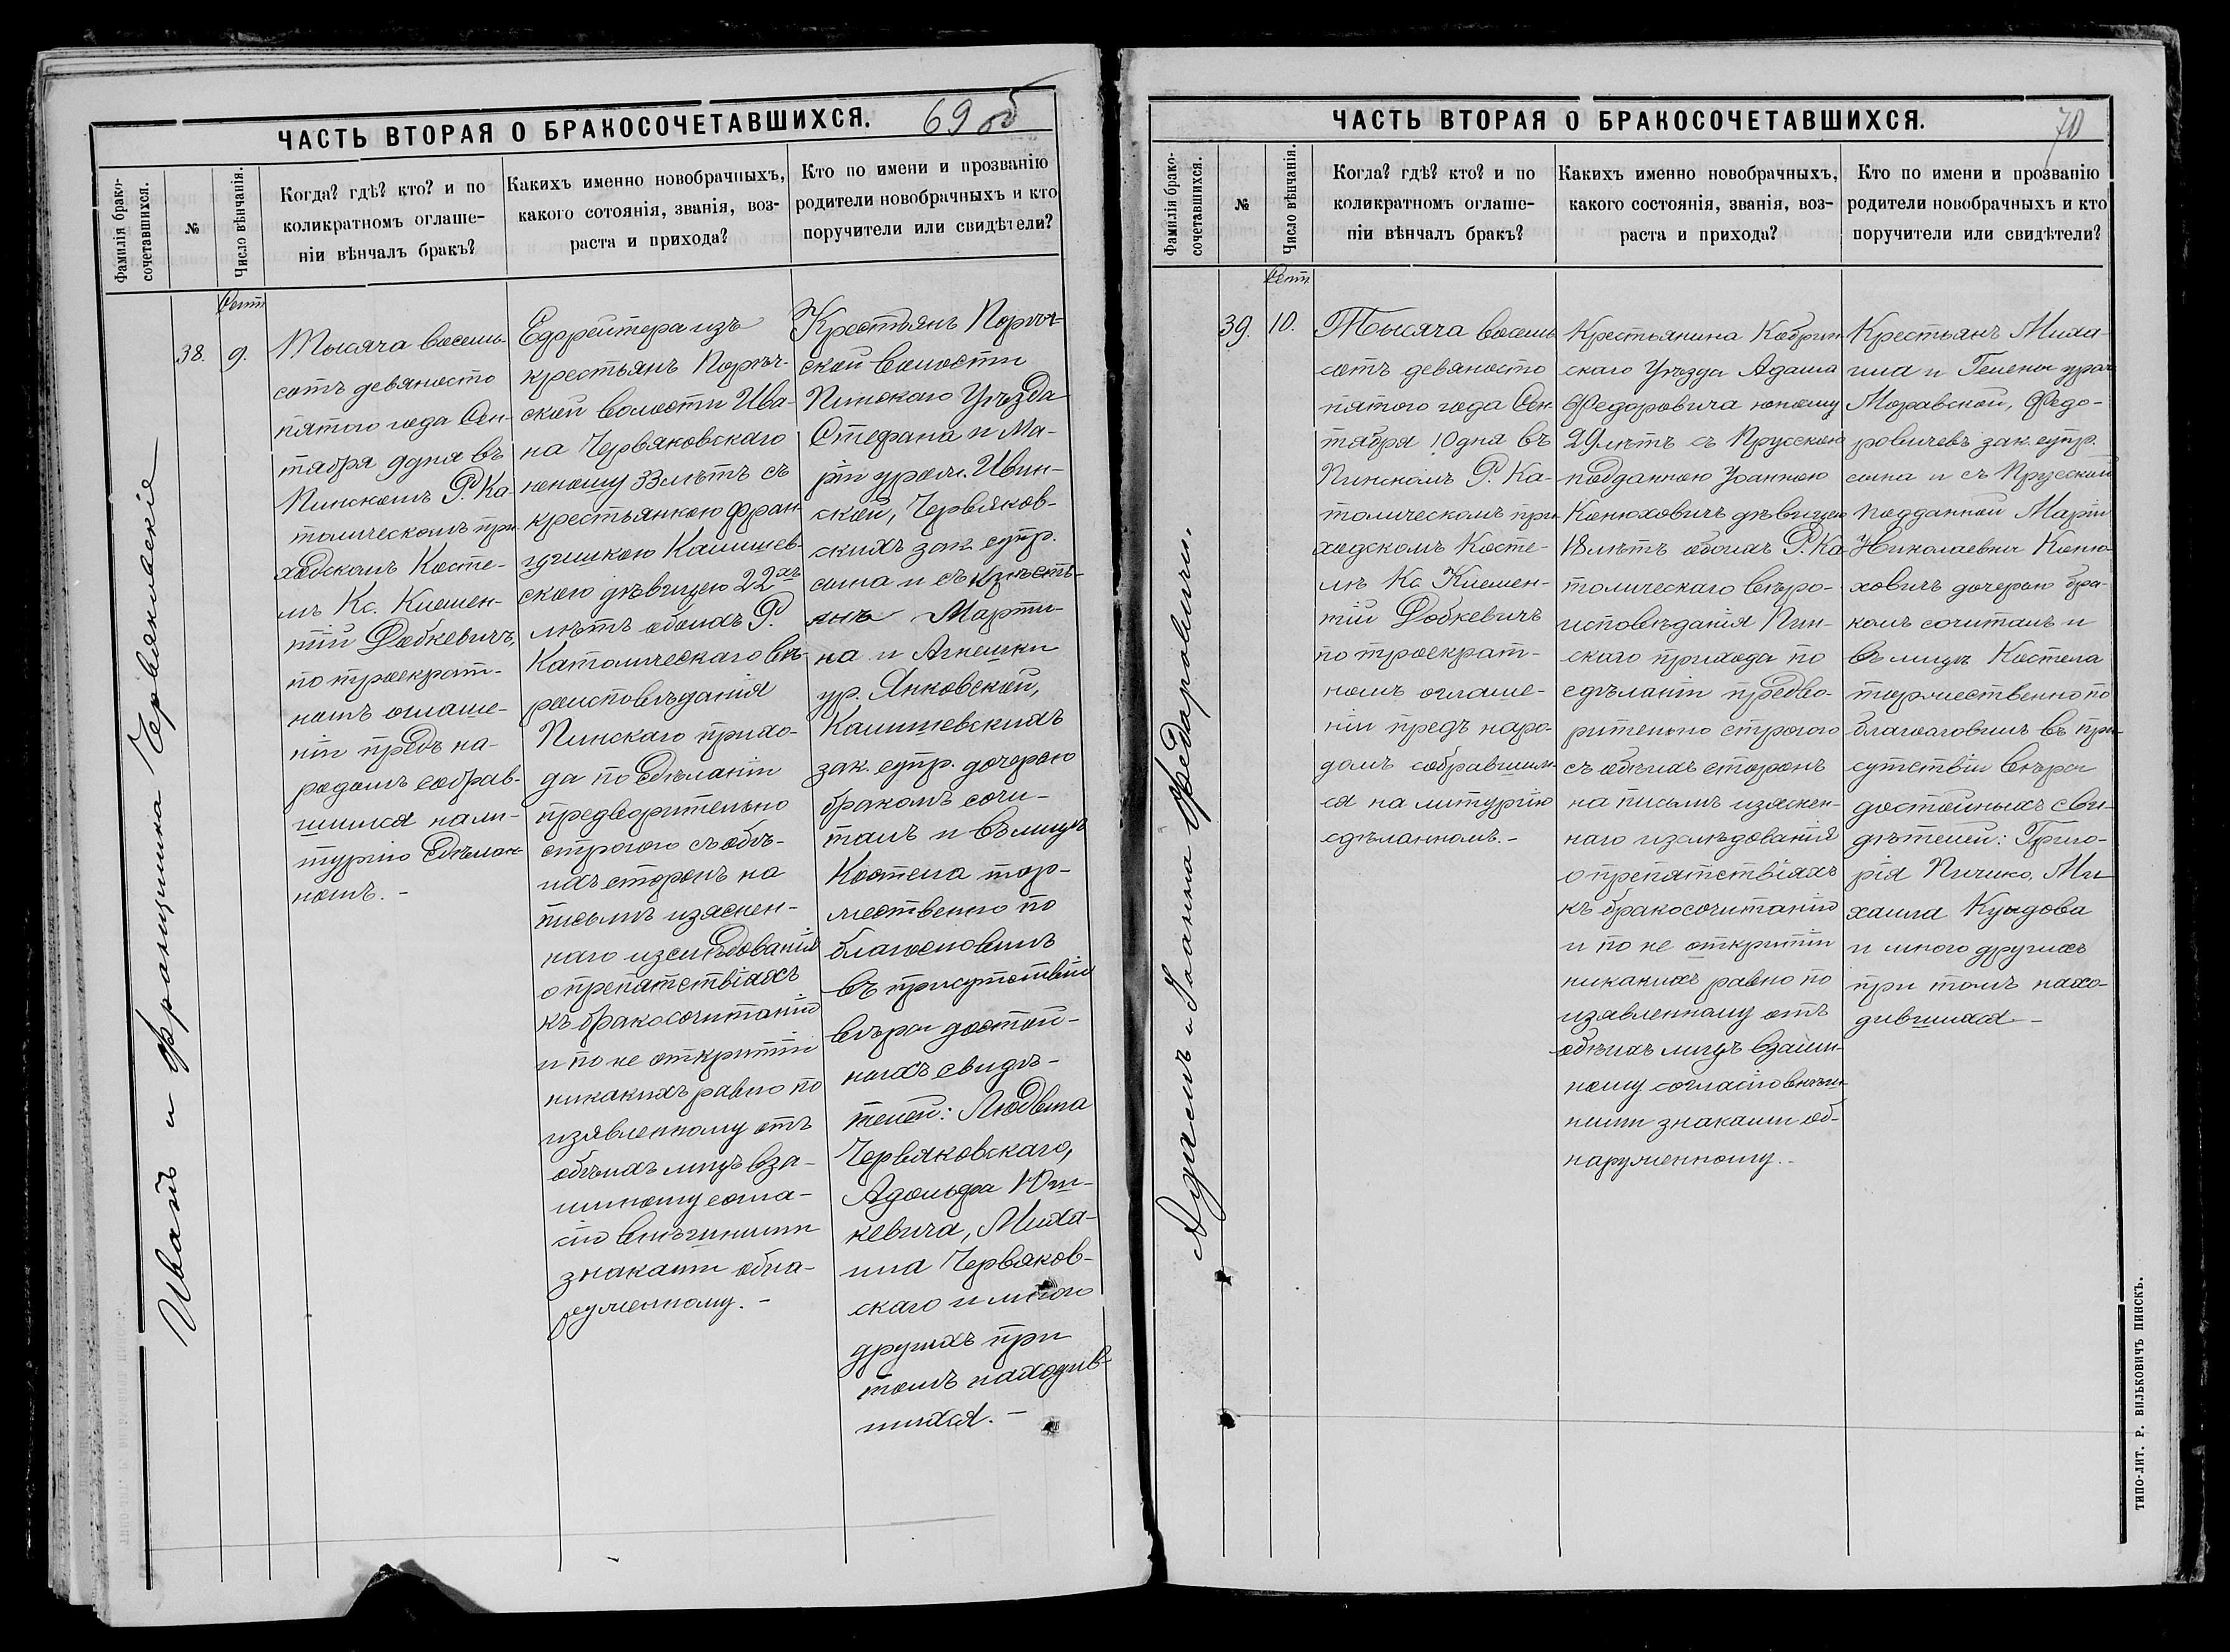 ЧАСТЬ ВТОРАЯ О БРАКОСОЧЕТАВШИХСЯ.
69 об
Фамилія брако-
сочетавшихся.
№
Число вѣнчанія.
Когда? гдѣ? кто? и по
коликратномъ оглаше-
ніи вѣнчалъ бракъ?
Какихъ именно новобрачныхъ,
какого сотоянія, званія, воз-
раста и прихода?
Кто по имени и прозванію
родители новобрачныхъ и кто
поручители или свидѣтели?
Иванъ и Францишка Червяковскіе
38.
Сент.
9.
Тысяча восемь
сотъ девяносто
пятого года Сен-
тября 9 дня въ
Пинскомъ Р. Ка-
толическомъ при-
ходскомъ Косте-
лѣ Кс. Клемен-
тій Добкевичъ,
по троекрат-
номъ оглаше-
ніи предъ на-
родомъ собрав-
шимся на ли-
тургію сдѣлан-
номъ. -
Ефрейтера изъ
крестьянъ Порѣч-
ской волости Ива-
на Червяковскаго
юношу 33 лѣтъ съ
крестьянкою Фран-
цишкою Калишев-
скою дѣвицею 22хъ
лѣтъ обоихъ Р.
Католическаго вѣ-
роисповѣданія
Пинскаго прихо-
да по сдѣланіи
предворительно
строгого съ обѣ-
ихъ сторонъ на
письмѣ изяснен-
наго изслѣдованія
о препятствіяхъ
къ бракосочитанію
и по не открытіи
никакихъ равно по
изявленному отъ
обѣихъ лицъ вза-
имному согла-
сію внѣшними
знаками обна-
руженному. -
Крестьянъ Порѣч-
ской волости
Пинскаго Уѣзда
Стефана и Ма-
ріи урожд. Ивин-
ской, Червяков-
скихъ зак. супр.
сына и съ крестъ-
янъ Марти-
на и Агнешки
ур. Янковской,
Калишевскихъ
зак. супр. дочерью
бракомъ сочи-
талъ и въ лицѣ
Костела тор-
жественно по
благословилъ
въ присутствіи
вѣры достой-
ныхъ свидѣ-
телей: Людвига
Червяковскаго,
Адольфа Юш-
кевича, Миха-
ила Червяков-
скаго и много
другихъ при
томъ находив-
шихся. -
ЧАСТЬ ВТОРАЯ О БРАКОСОЧЕТАВШИХСЯ.
70
Фамилія брако-
сочетавшихся.
№
Число вѣнчанія.
Когда? гдѣ? кто? и по
коликратномъ оглаше-
ніи вѣнчалъ бракъ?
Какихъ именно новобрачныхъ,
какого состоянія, званія, воз-
раста и прихода?
Кто по имени и прозванію
родители новобрачныхъ и кто
поручители или свидѣтели?
Адамъ и Іоанна Федоровичи.
39.
Сент.
10.
Тысяча восемь
сотъ девяносто
пятого года Сен-
тября 10 дня въ
Пинскомъ Р. Ка-
толическомъ при-
ходскомъ Косте-
лѣ Кс. Клемен-
тій Добкевичъ
по троекрат-
номъ оглаше-
ніи предъ наро-
домъ собравшим-
ся на литургію
сдѣланномъ. -
Крестьянина Кобрин-
скаго Уѣзда Адама
Федоровича юношу
29 лѣтъ съ Прусскою
подданною Іоанною
Конюховичъ дѣвицею
18 лѣтъ обоихъ Р. Ка-
толическаго вѣро-
исповѣданія Пин-
скаго прихода по
сдѣланіи предво-
рительно строгого
съ обѣихъ сторонъ
на письмѣ изяснен-
наго изслѣдованія
о препятствіяхъ
къ бракосочитанію
и по не открытіи
никакихъ равно по
изявленному отъ
обѣихъ лицъ взаим-
ному согласію внѣш-
ними знаками об-
наруженному. -
Крестьянъ Миха-
ила и Гелены урож.
Моравской, Федо-
ровичевъ зак. супр.
сына и съ Прусской
подданной Маріи
Николаевны Коню-
ховичъ дочерью бра-
комъ сочиталъ и
въ лицѣ Костела
торжественно по
благословилъ въ при-
сутствіи вѣры
достойныхъ сви-
дѣтелей: Григо-
рія Пичико, Ми-
хаила Куидова
и много другихъ
при томъ нахо-
дившихся. -
ТИПО-ЛИТ. Р. ВИЛЬКОВИЧЪ ПИНСКЪ.